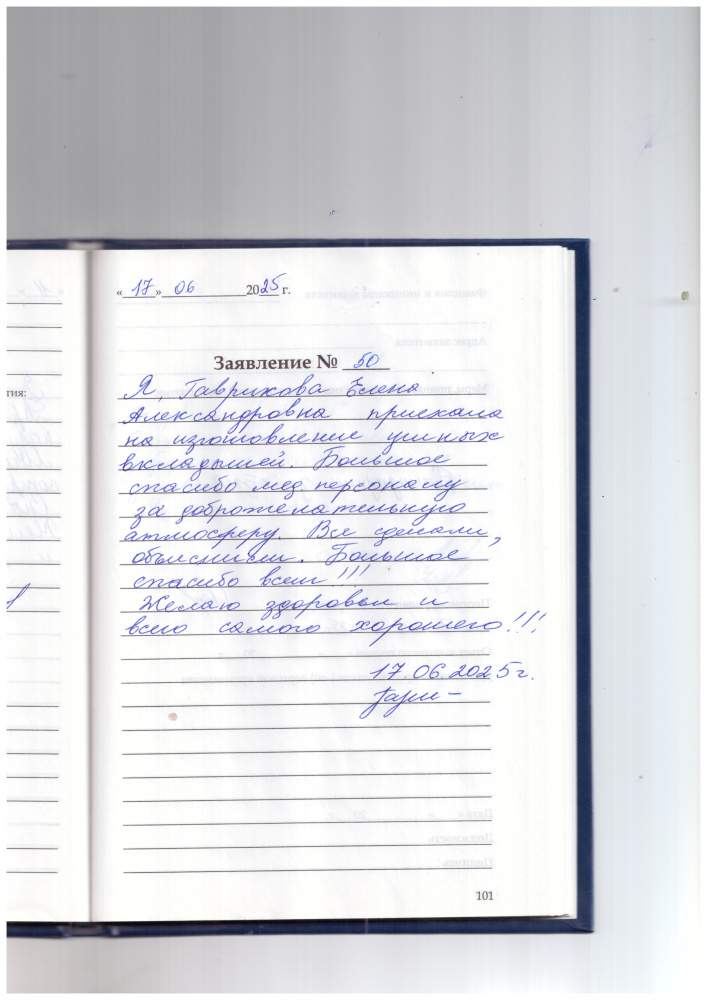 « 17 » 06 2025 г.
Заявление № 50
Я, Гаврихова Елена
Александровна приехала
на изготовление ушных
вкладышей. Большое
спасибо мед персоналу
за доброжелательную
атмосферу. Все сделали,
объяснили. Большое
спасибо всем!!!
Желаю здоровья и
всего самого хорошего!!!
17.06.2025г.
101